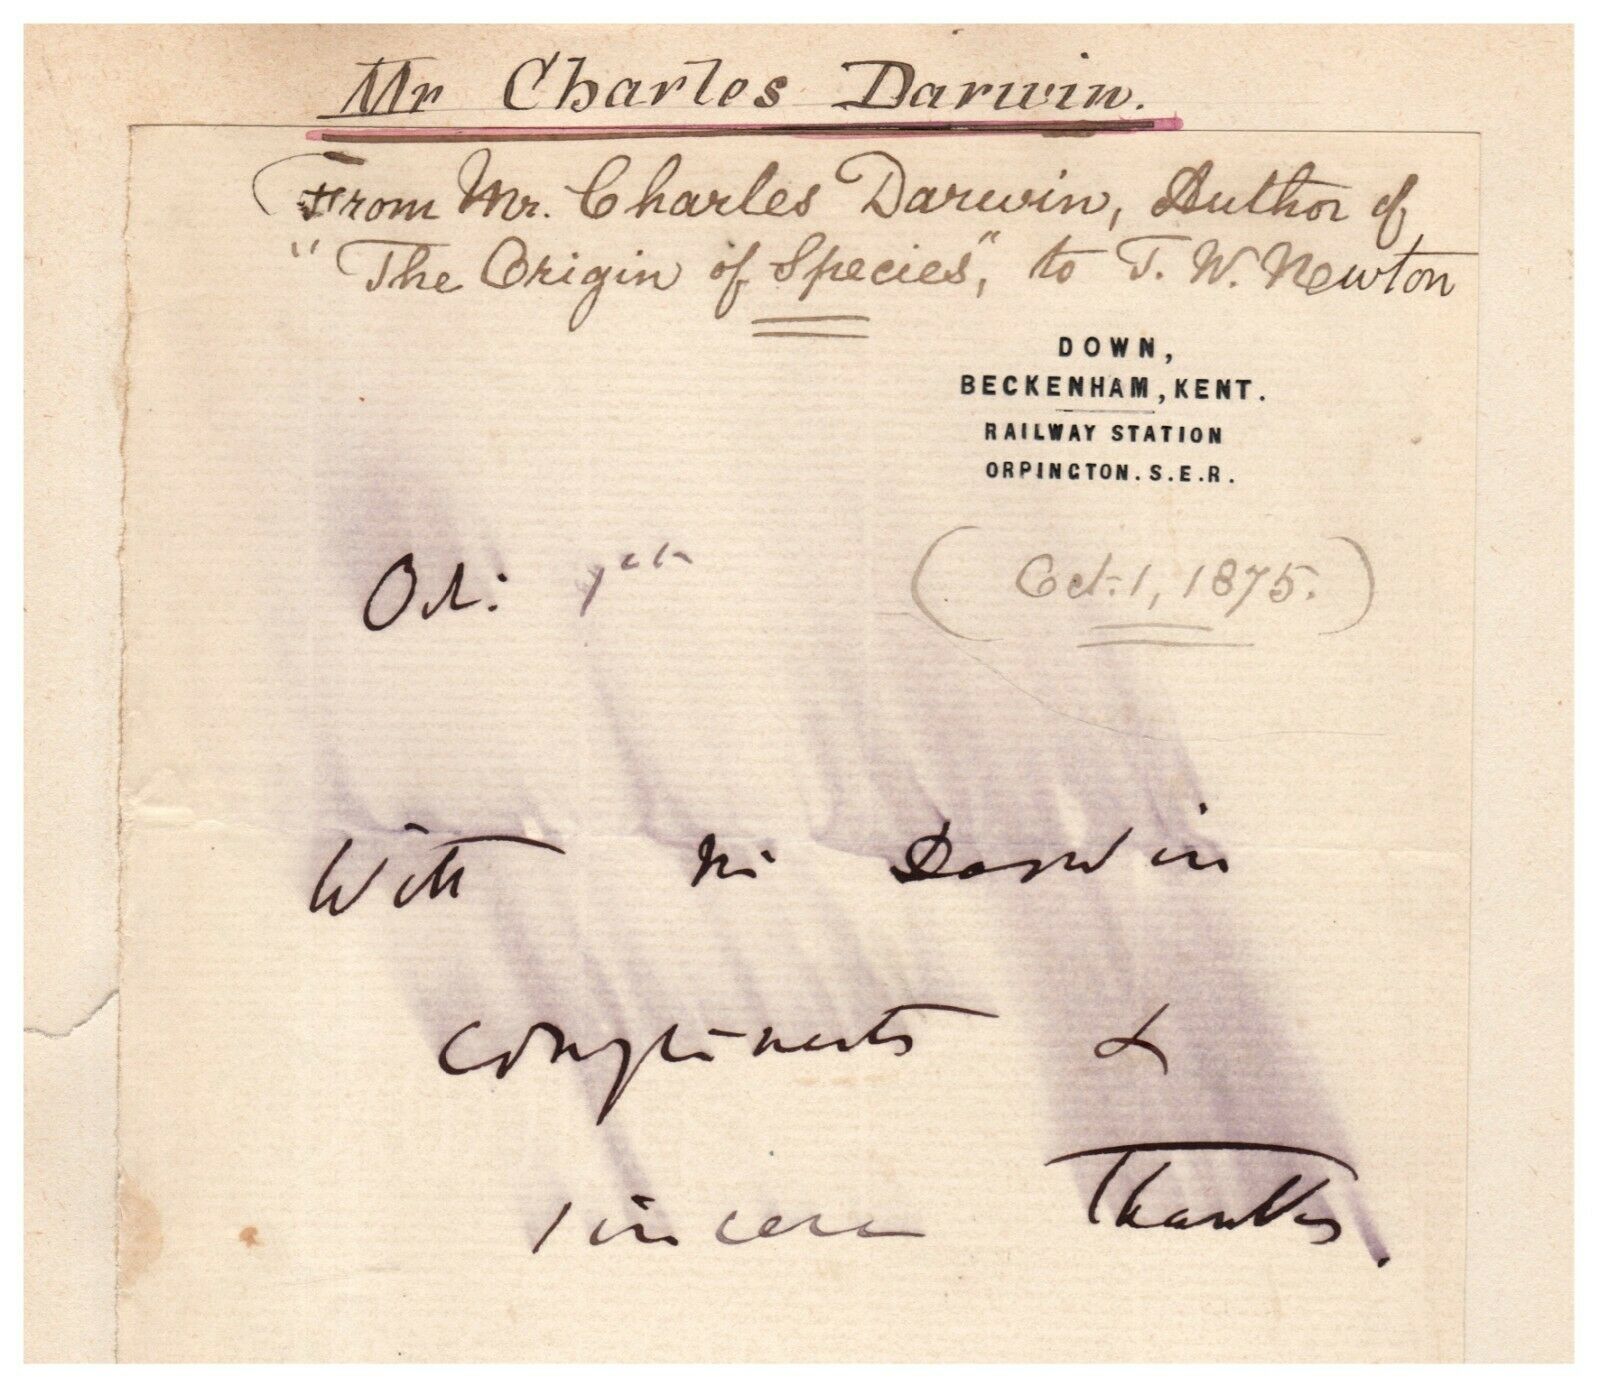 Mr Charles Darwin.
From Mr. Charles Darwin, Author of
"The Origin of Species", to T. W. Newton
DOWN,
BECKENHAM, KENT.
RAILWAY STATION
ORPINGTON. S.E.R.
Oct:
(Oct. 1, 1875.)
With Mr Darwin
compliments &
sincere Thanks.